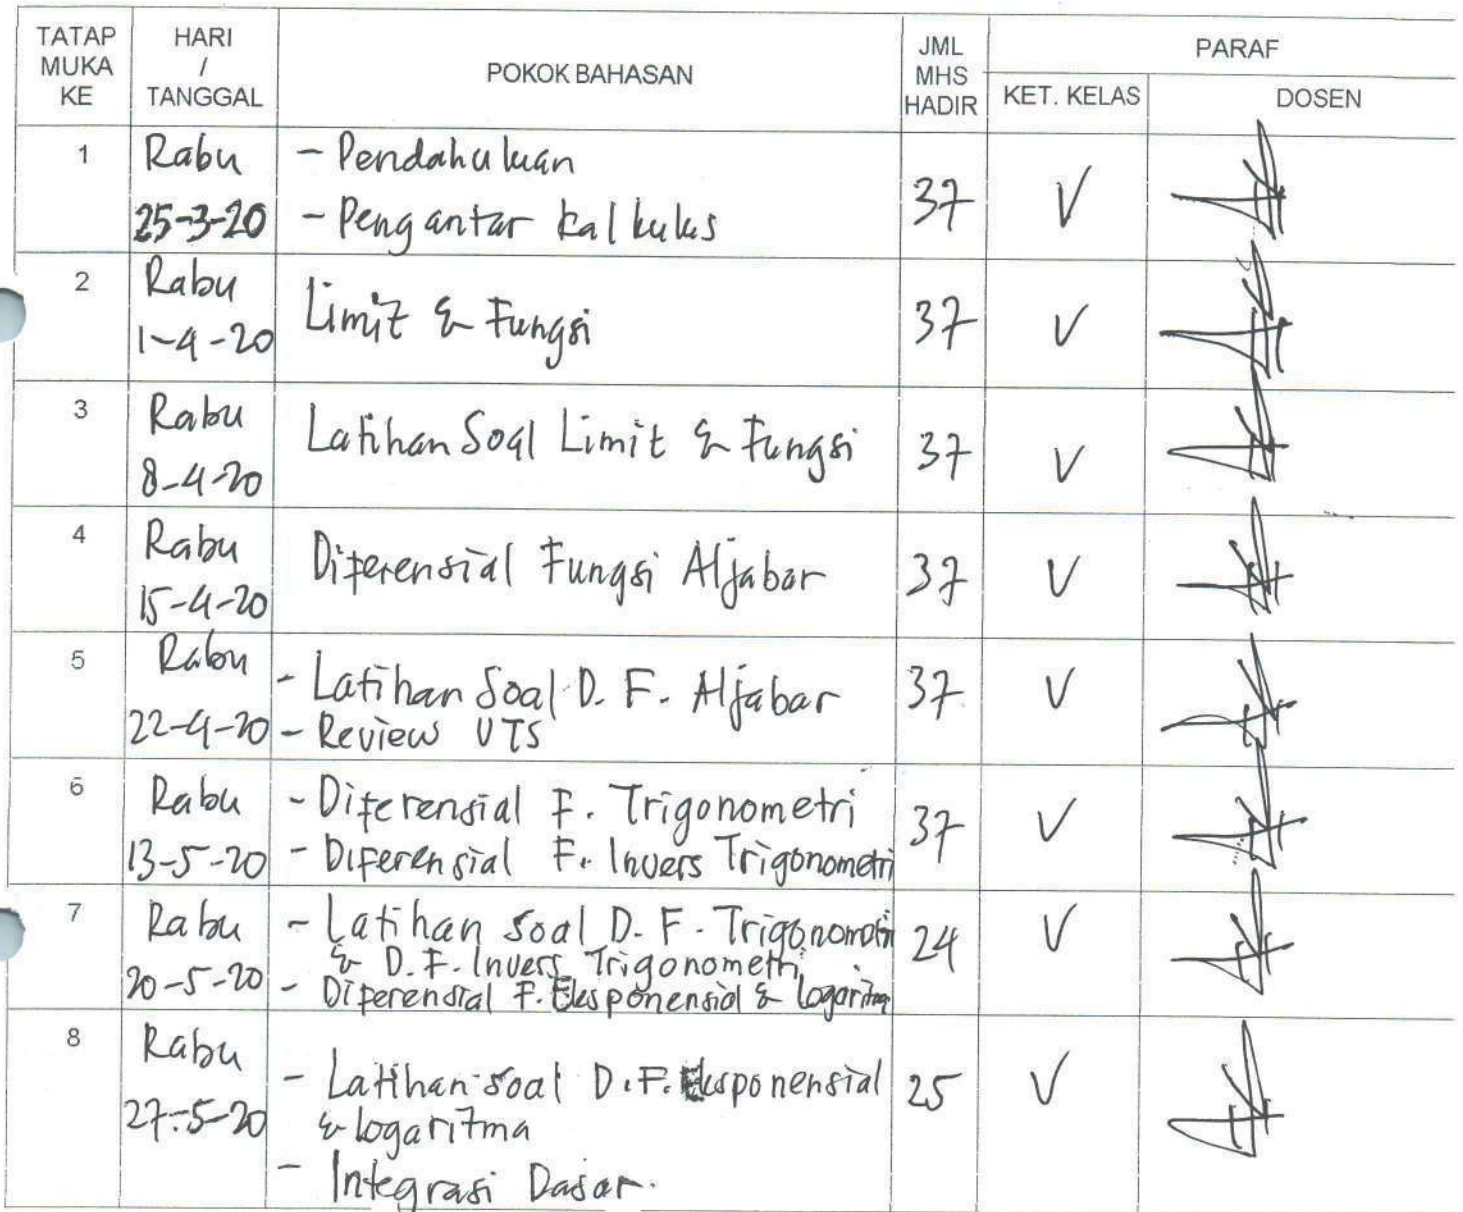 TATAP MUKA KE
HARI / TANGGAL
POKOK BAHASAN
JML MHS HADIR
PARAF
KET. KELAS
DOSEN
1
Rabu
25-3-20
- Pendahuluan
- Pengantar kalkulus
37
V
2
Rabu
1-4-20
Limit & Fungsi
37
V
3
Rabu
8-4-20
Latihan Soal Limit & Fungsi
37
V
4
Rabu
15-4-20
Diferensial Fungsi Aljabar
37
V
5
Rabu
22-4-20
- Latihan Soal D. F. Aljabar
- Review UTS
37
V
6
Rabu
13-5-20
- Diferensial F. Trigonometri
- Diferensial F. Invers Trigonometri
37
V
7
Rabu
20-5-20
- Latihan soal D. F. Trigonometri
& D. F. Invers Trigonometri
- Diferensial F. Eksponensial & Logaritma
24
V
8
Rabu
27-5-20
- Latihan soal D.F. Eksponensial
& logaritma
- Integrasi Dasar.
25
V